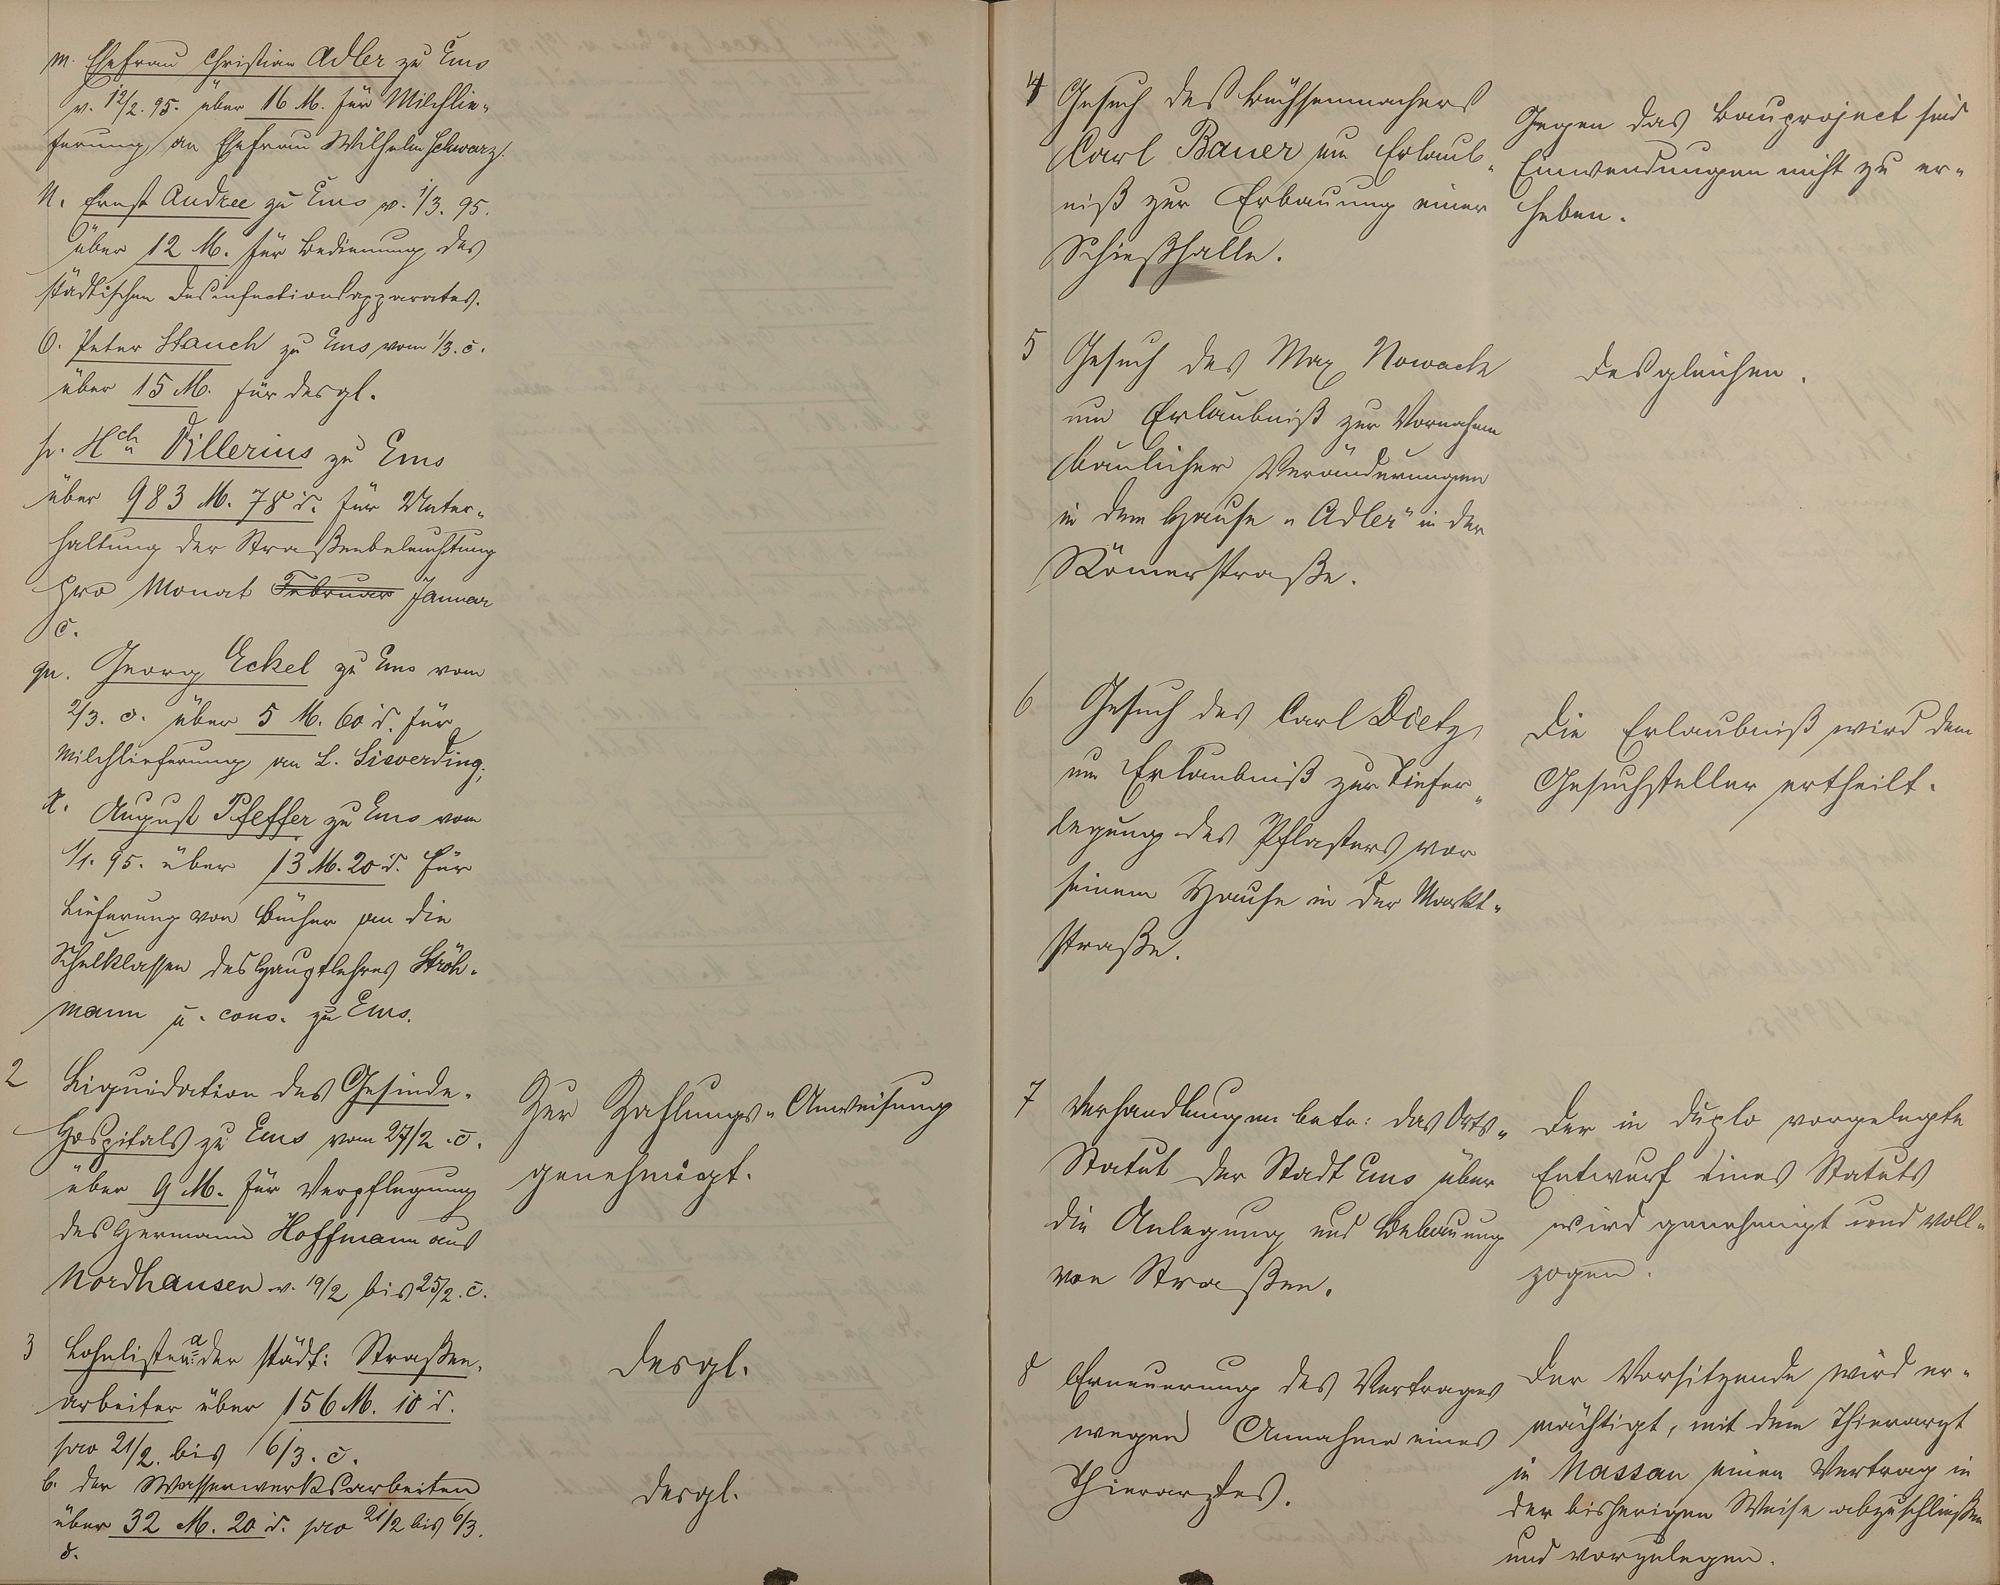 m. Ehefrau Christian Adler zu Ems
v. 12/2. 95. über 16 M. für Milchlie-
ferung an Ehefrau Wilhelm Schwarz.
n. Ernst Andree zu Ems v. 1/3. 95.
über 12 M. für Bedienung des
städtischen Desinfectionsapparates.
o. Peter Stauch zu Ems vom 1/3. c.
über 15 M. für desgl.
p. Hch Villerius zu Ems
über 983 M. 78 d. für Unter-
haltung der Straßenbeleuchtung
pro Monat Februar Januar
c.
q. Georg Eckel zu Ems vom
2/3. c. über 5 M. 60 d. für
Milchlieferung an L. Sieverding.
r. August Pfeffer zu Ems vom
1/1. 95. über 13 M. 20 d. für
Lieferung von Bücher an die
Schulklassen des Hauptlehrers Ströh-
mann u. cons. zu Ems.
2 Liquidation des Gesinde-
Hospitals zu Ems vom 27/2. c.
über 9 M. für Verpflegung
des Hermann Hoffmann aus
Nordhausen v. 19/2 bis 25/2. c.
Zur Zahlungs-Anweisung
genehmigt.
3 Lohnlisten a. der städt: Straßen-
arbeiter über 156 M. 10 d.
pro 21/2. bis 6/3. c.
desgl.
b. der Wasserwerksarbeiten
über 32 M. 20 d. pro 21/2 bis 6/3.
c.
desgl.
4 Gesuch des Büchsenmachers
Carl Bauer um Erlaub-
niß zur Erbauung einer
Schießhalle.
Gegen das Bauproject sind
Einwendungen nicht zu er-
heben.
5 Gesuch des Max Nowack
um Erlaubniß zur Vornahme
baulicher Veränderungen
in dem Hause "Adler" in der
Römerstraße.
Desgleichen.
6 Gesuch des Carl Dietz
um Erlaubniß zur Tiefer-
legung des Pflasters vor
seinem Hause in der Markt-
straße.
Die Erlaubniß wird dem
Gesuchsteller ertheilt.
7 Verhandlungen betr: das Orts-
Statut der Stadt Ems über
die Anlegung und Bebauung
von Straßen.
Der in duplo vorgelegte
Entwurf eines Statuts
wird genehmigt und voll-
zogen.
8 Erneuerung des Vertrages
wegen Annahme eines
Thierarztes.
Der Vorsitzende wird er-
mächtigt, mit dem Thierarzt
in Nassau einen Vertrag in
der bisherigen Weise abzuschließen
und vorzulegen.